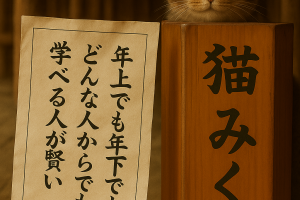 年上でも年下で
どんな人からで
学べる人が賢い
猫みく